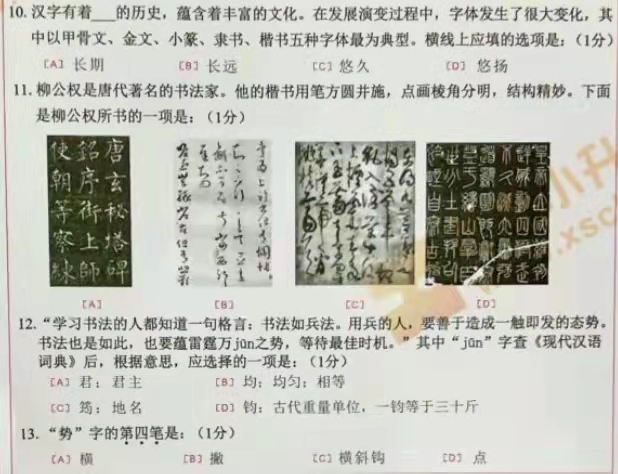 10. 汉字有着___的历史，蕴含着丰富的文化。在发展演变过程中，字体发生了很大变化，其
中以甲骨文、金文、小篆、隶书、楷书五种字体最为典型。横线上应填的选项是：（1分）
[A] 长期 [B] 长远 [C] 悠久 [D] 悠扬
11. 柳公权是唐代著名的书法家。他的楷书用笔方圆并施，点画棱角分明，结构精妙。下面
是柳公权所书的一项是：（1分）
唐玄秘塔碑
銘序街上師
使朝等察
[A] [B] [C] [D]
12. “学习书法的人都知道一句格言：书法如兵法。用兵的人，要善于造成一触即发的态势。
书法也是如此，也要蕴雷霆万jūn之势，等待最佳时机。”其中“jūn”字查《现代汉语
词典》后，根据意思，应选择的一项是：（1分）
[A] 君：君主 [B] 均：均匀；相等
[C] 筠：地名 [D] 钧：古代重量单位，一钧等于三十斤
13. “势”字的第四笔是：（1分）
[A] 横 [B] 撇 [C] 横斜钩 [D] 点